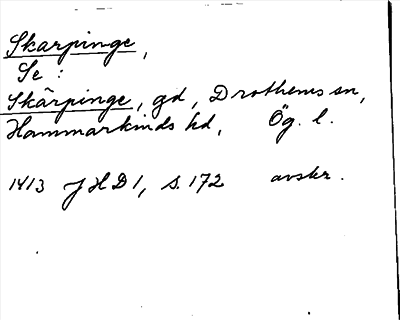 Skarpinge,
Se:
Skärpinge, gd, Drothems sn,
Hammarkinds hd, Ög. l.
1413 JHD 1, s. 172 avskr.